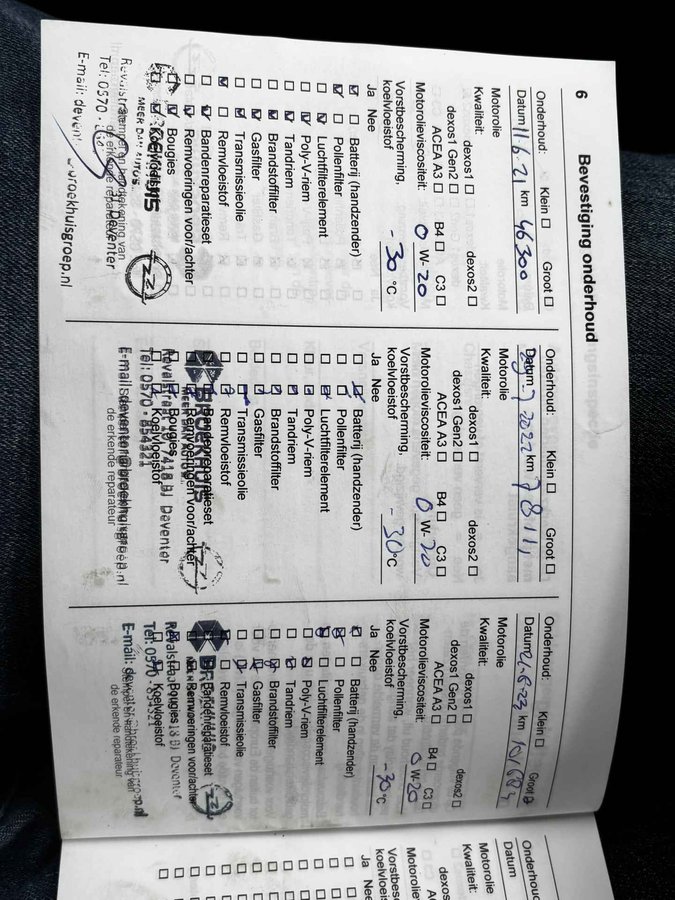 6
Bevestiging onderhoud
Onderhoud: Klein ☐ Groot ☐
Datum 11.6.21 km 46300
Motorolie
Kwaliteit:
dexos1 ☐ dexos2 ☐
dexos1 Gen2 ☐
ACEA A3 ☐ B4 ☐ C3 ☐
Motorolieviscositeit: 0 W-20
Vorstbescherming, koelvloeistof -30 °C
Ja Nee
Batterij (handzender)
Pollenfilter
Luchtfilterelement
Poly-V-riem
Tandriem
Brandstoffilter
Gasfilter
Transmissieolie
Remvloeistof
Bandenreparatieset
Remvoeringen voor/achter
Bougies
MEER DAN AUTO'S.
Deventer
Tel: 0570
E-mail: deven
roekhuisgroep.nl
de erkende reparateur
Onderhoud: Klein ☐ Groot ☐
Datum 2022 km
Motorolie
Kwaliteit:
dexos1 ☐ dexos2 ☐
dexos1 Gen2 ☐
ACEA A3 ☐ B4 ☐ C3 ☐
Motorolieviscositeit: 0 W-20
Vorstbescherming, koelvloeistof -30 °C
Ja Nee
Batterij (handzender)
Pollenfilter
Luchtfilterelement
Poly-V-riem
Tandriem
Brandstoffilter
Gasfilter
Transmissieolie
Remvloeistof
Bandenreparatieset
Remvoeringen voor/achter
Bougies
Koelvloeistof
BROEKHUIS
Deventer
Tel: 0570 - 854321
de erkende reparateur
Onderhoud: Klein ☐ Groot
Datum km
Motorolie
Kwaliteit:
dexos1 ☐ dexos2 ☐
dexos1 Gen2 ☐
ACEA A3 ☐ B4 ☐ C3 ☐
Motorolieviscositeit: 0 W-20
Vorstbescherming, koelvloeistof -30 °C
Ja Nee
Batterij (handzender)
Pollenfilter
Luchtfilterelement
Poly-V-riem
Tandriem
Brandstoffilter
Gasfilter
Transmissieolie
Remvloeistof
Bandenreparatieset
Remvoeringen voor/achter
Bougies
Koelvloeistof
Deventer
Tel: 0570 - 854321
de erkende reparateur
Datum
Motorolie
Kwaliteit:
ACEA A3
Ja